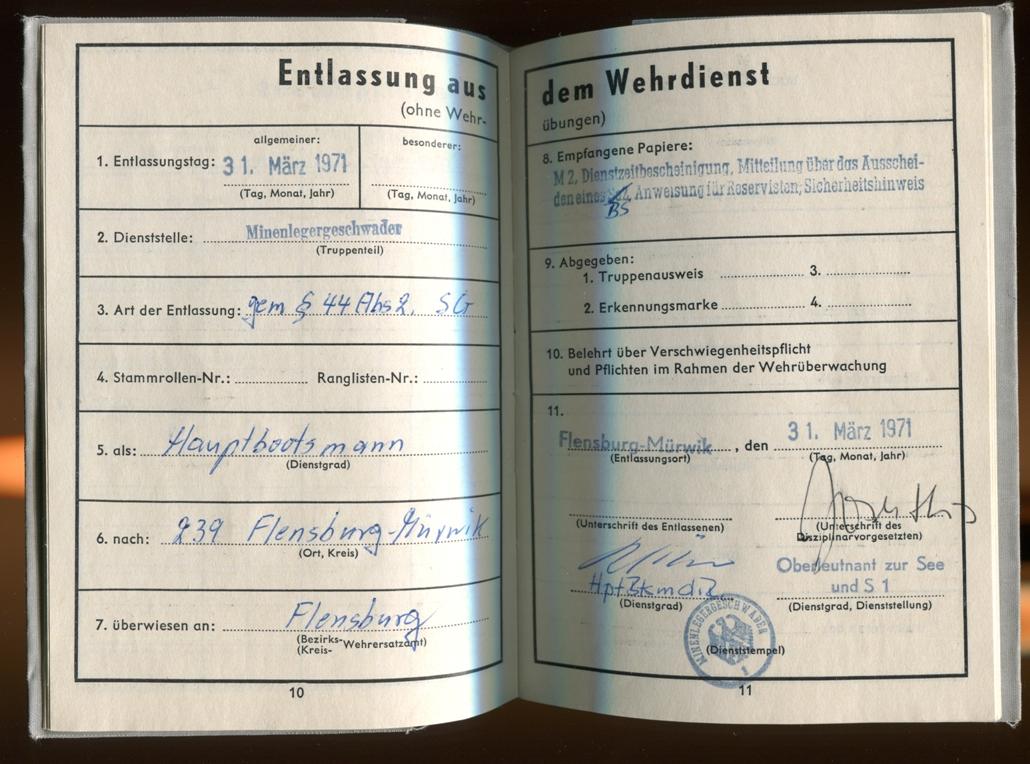 Entlassung aus
(ohne Wehr-
allgemeiner:
besonderer:
1. Entlassungstag: 31. März 1971
(Tag, Monat, Jahr)
(Tag, Monat, Jahr)
2. Dienststelle: Minenlegergeschwader
(Truppenteil)
3. Art der Entlassung: gem § 44 Abs 2. SG
4. Stammrollen-Nr.: Ranglisten-Nr.:
5. als: Hauptbootsmann
(Dienstgrad)
6. nach: 239 Flensburg-Mürwik
(Ort, Kreis)
7. überwiesen an: Flensburg
(Bezirks-
(Kreis- Wehrersatzamt)
10
dem Wehrdienst
übungen)
8. Empfangene Papiere:
M 2, Dienstzeitbescheinigung, Mitteilung über das Ausschei-
den eines BS, Anweisung für Reservisten, Sicherheitshinweis
9. Abgegeben:
1. Truppenausweis 3.
2. Erkennungsmarke 4.
10. Belehrt über Verschwiegenheitspflicht
und Pflichten im Rahmen der Wehrüberwachung
11.
Flensburg-Mürwik, den 31. März 1971
(Entlassungsort)
(Tag, Monat, Jahr)
(Unterschrift des Entlassenen)
(Unterschrift des
Disziplinarvorgesetzten)
Oberleutnant zur See
und S 1
(Dienstgrad)
(Dienstgrad, Dienststellung)
MINENLEGERGESCHWADER
1
(Dienststempel)
11